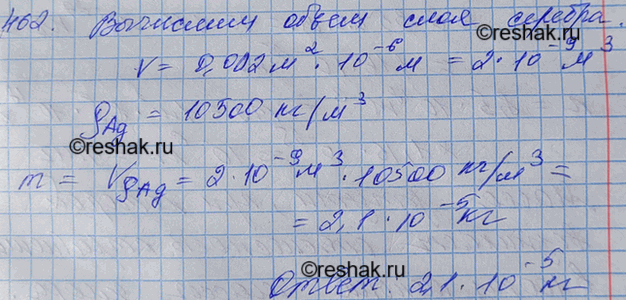 462. Вычислим объем слоя серебра.
V = 0,002 м² · 10⁻⁶ м = 2 · 10⁻⁹ м³
©reshak.ru
ρAg = 10500 кг/м³
©reshak.ru
m = VρAg = 2 · 10⁻⁹ м³ · 10500 кг/м³ =
= 2,1 · 10⁻⁵ кг
©reshak.ru
Ответ: 2,1 · 10⁻⁵ кг